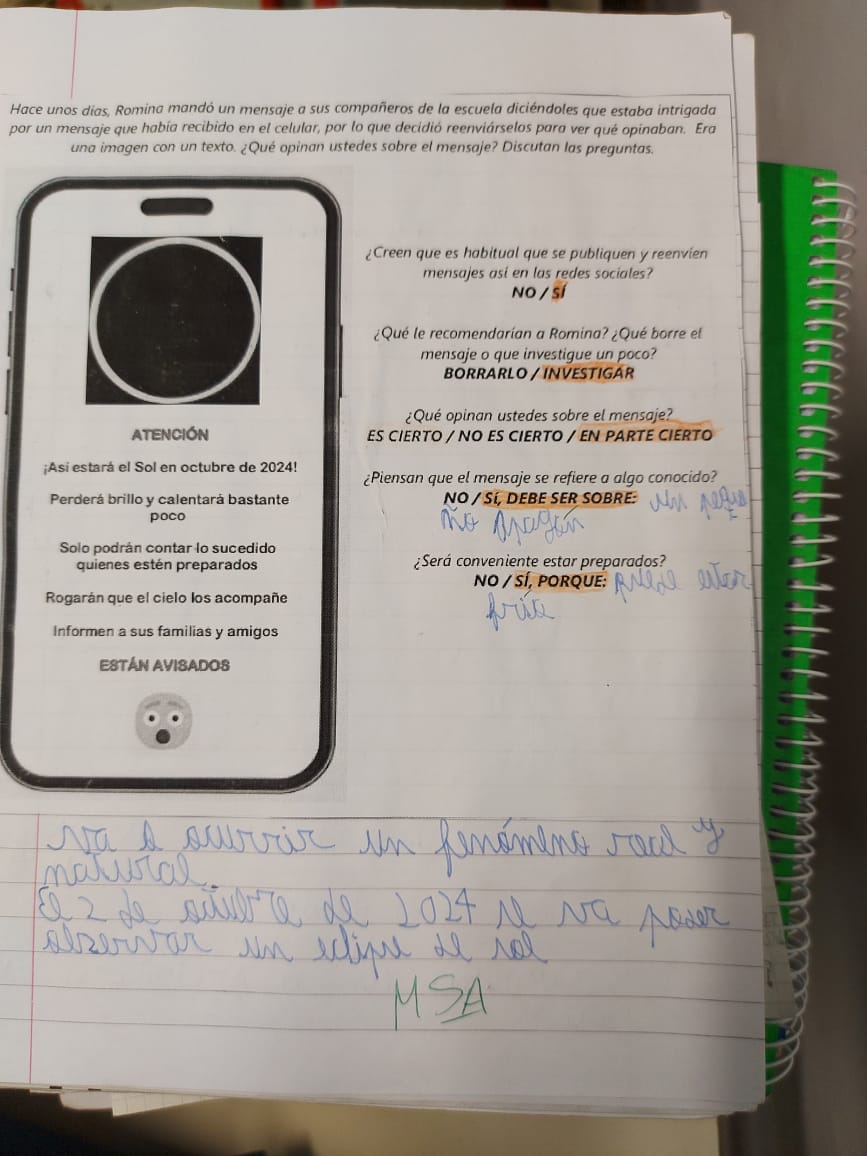 Hace unos días, Romina mandó un mensaje a sus compañeros de la escuela diciéndoles que estaba intrigada
por un mensaje que había recibido en el celular, por lo que decidió reenviárselos para ver qué opinaban. Era
una imagen con un texto. ¿Qué opinan ustedes sobre el mensaje? Discutan las preguntas.
ATENCIÓN
¡Así estará el Sol en octubre de 2024!
Perderá brillo y calentará bastante
poco
Solo podrán contar lo sucedido
quienes estén preparados
Rogarán que el cielo los acompañe
Informen a sus familias y amigos
ESTÁN AVISADOS
¿Creen que es habitual que se publiquen y reenvíen
mensajes así en las redes sociales?
NO / SÍ
¿Qué le recomendarían a Romina? ¿Qué borre el
mensaje o que investigue un poco?
BORRARLO / INVESTIGAR
¿Qué opinan ustedes sobre el mensaje?
ES CIERTO / NO ES CIERTO / EN PARTE CIERTO
¿Piensan que el mensaje se refiere a algo conocido?
NO / SÍ, DEBE SER SOBRE: un peque
ño apagón
¿Será conveniente estar preparados?
NO / SÍ, PORQUE: puede estar
va a ocurrir un fenómeno real y
natural.
El 2 de octubre de 2024 se va poder
observar un eclipse de sol
MSA